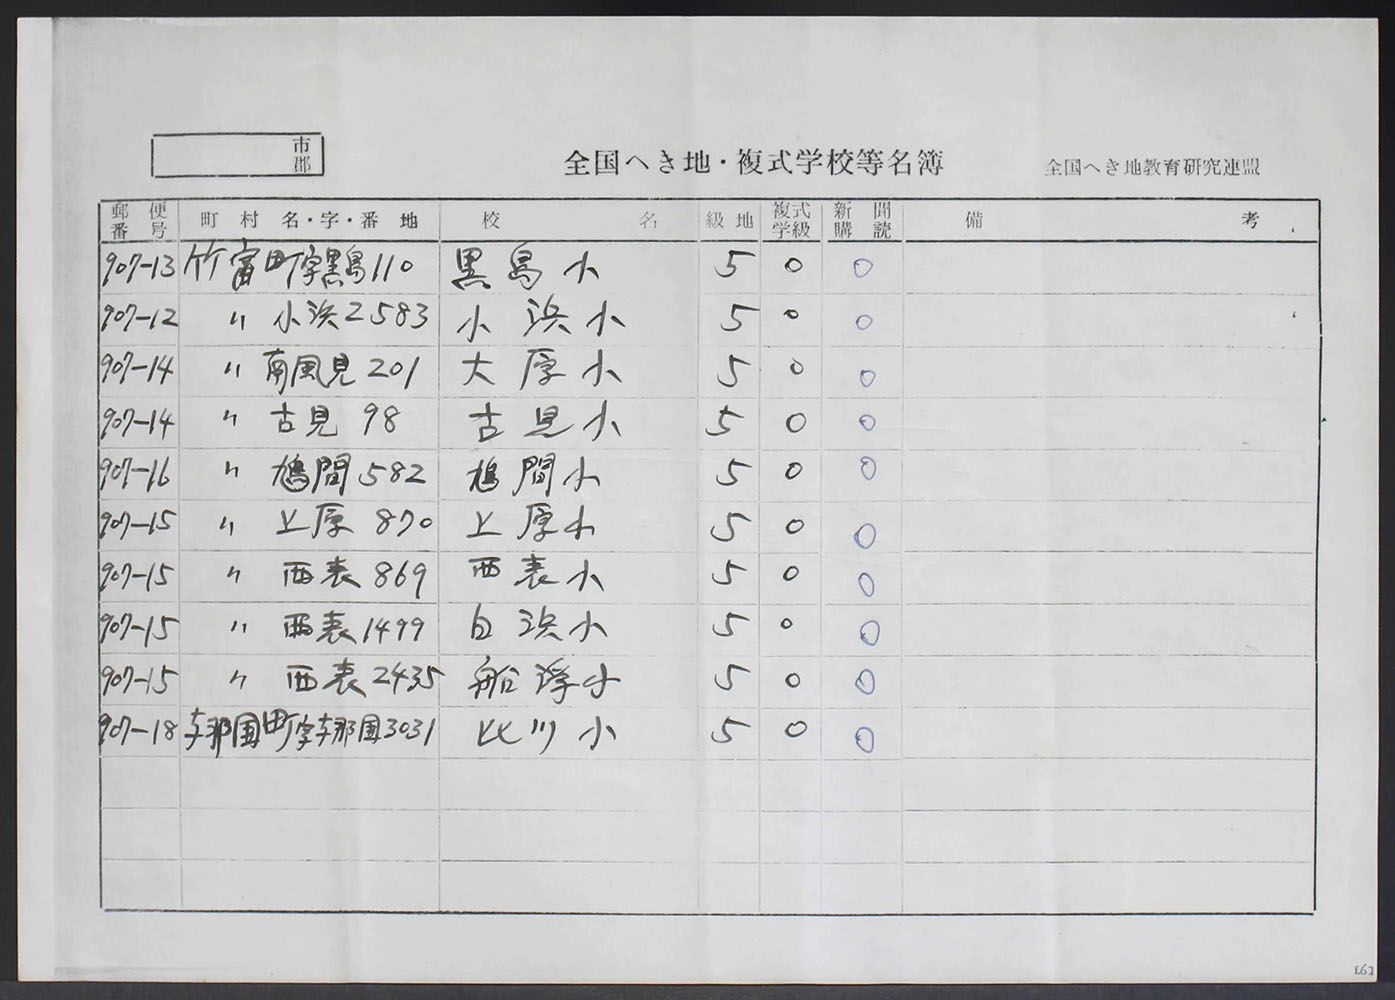 市
郡
全国へき地・複式学校等名簿
全国へき地教育研究連盟
郵便番号 町村名・字・番地 校名 級地 複式学級 新聞購読 備考
907-13 竹富町字黒島110 黒島小 5 ○ ○
907-12 〃 小浜2583 小浜小 5 ○ ○
907-14 〃 南風見201 大原小 5 ○ ○
907-14 〃 古見98 古見小 5 ○ ○
907-16 〃 鳩間582 鳩間小 5 ○ ○
907-15 〃 上原870 上原小 5 ○ ○
907-15 〃 西表869 西表小 5 ○ ○
907-15 〃 西表1499 白浜小 5 ○ ○
907-15 〃 西表2435 船浮小 5 ○ ○
907-18 与那国町字与那国3031 比川小 5 ○ ○